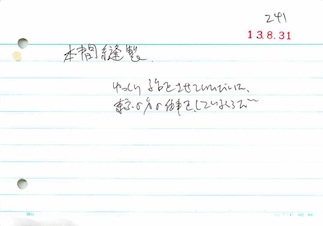 241
13.8.31
本間縫製
ゆっくり話をさせていただいた、
東京の方の仕事をしている